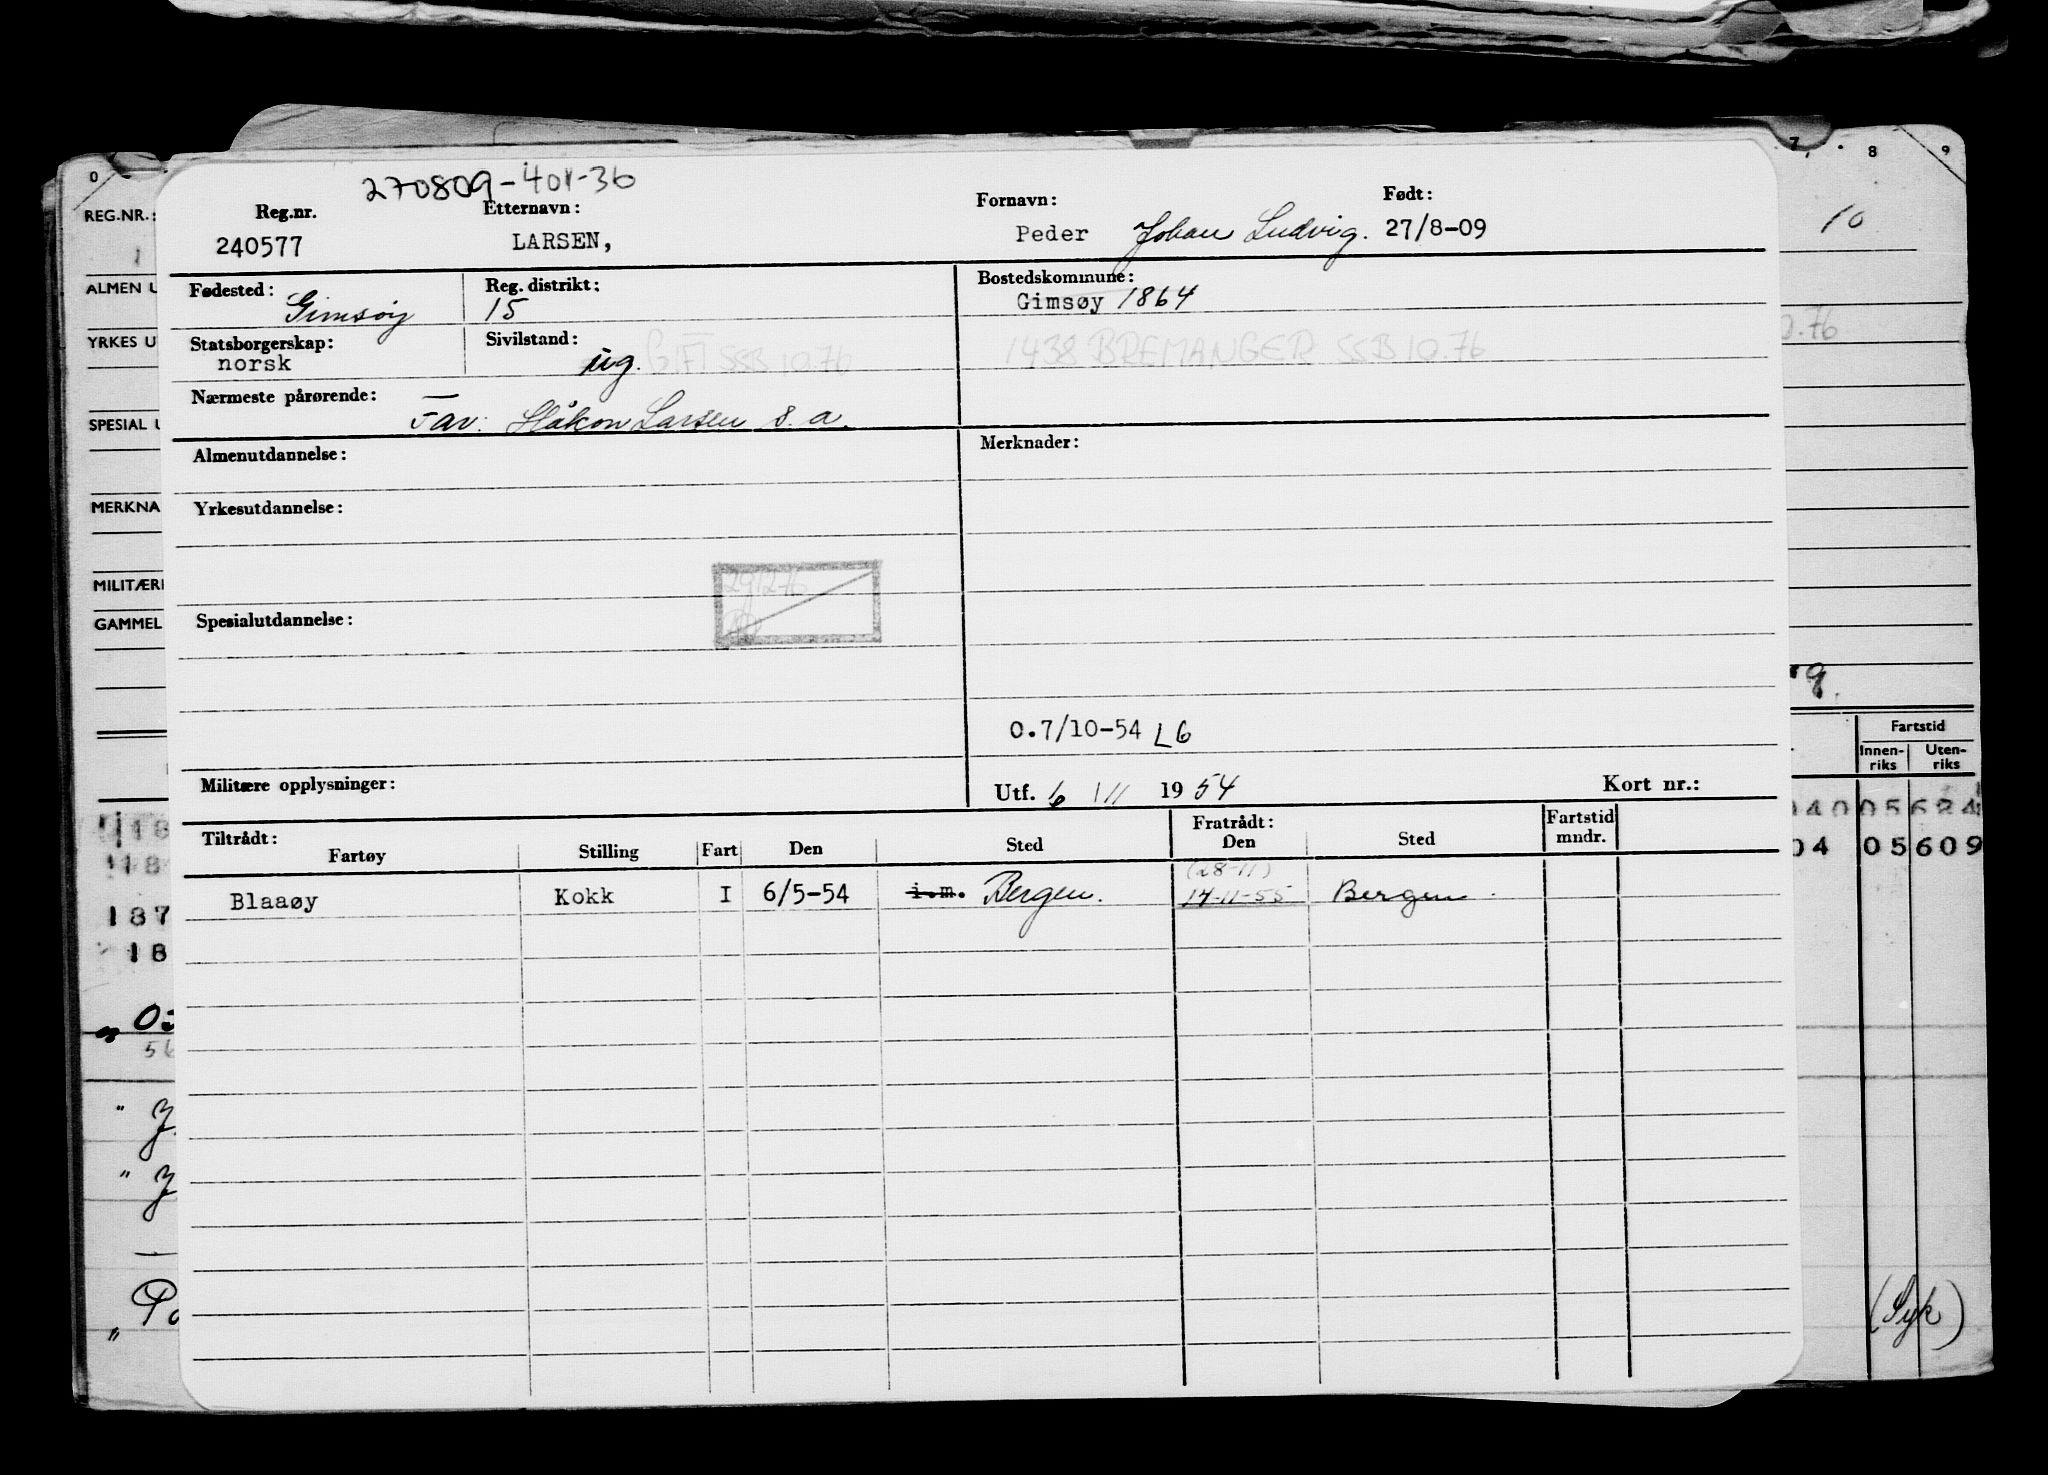 0 7 8 9
270809-401-36
REG.NR.: Reg.nr. Etternavn: Fornavn: Født:
240577 LARSEN, Peder Johan Ludvig. 27/8-09 10
ALMEN U Fødested: Gimsøy Reg. distrikt: 15 Bostedskommune: Gimsøy 1864
YRKES U Statsborgerskap: norsk Sivilstand: ug. GIFT SSB 10.76 1438 BREMANGER SSB 10.76 0.76
SPESIAL U Nærmeste pårørende: Far: Håkon Larsen s. a.
Almenutdannelse: Merknader:
MERKNA Yrkesutdannelse:
MILITÆRE 291276
GAMMEL Spesialutdannelse:
0.7/10-54 L6
Fartstid
Innen-riks Uten-riks
Militære opplysninger: Utf. 6/11 1954 Kort nr.:
Tiltrådt: Fratrådt: Fartstid mndr.
Fartøy Stilling Fart Den Sted Den Sted
(28-11)
Blaaøy Kokk I 6/5-54 i.m. Bergen. 14-11-55 Bergen
040 05 624
04 05 609
187
18
(Syk)